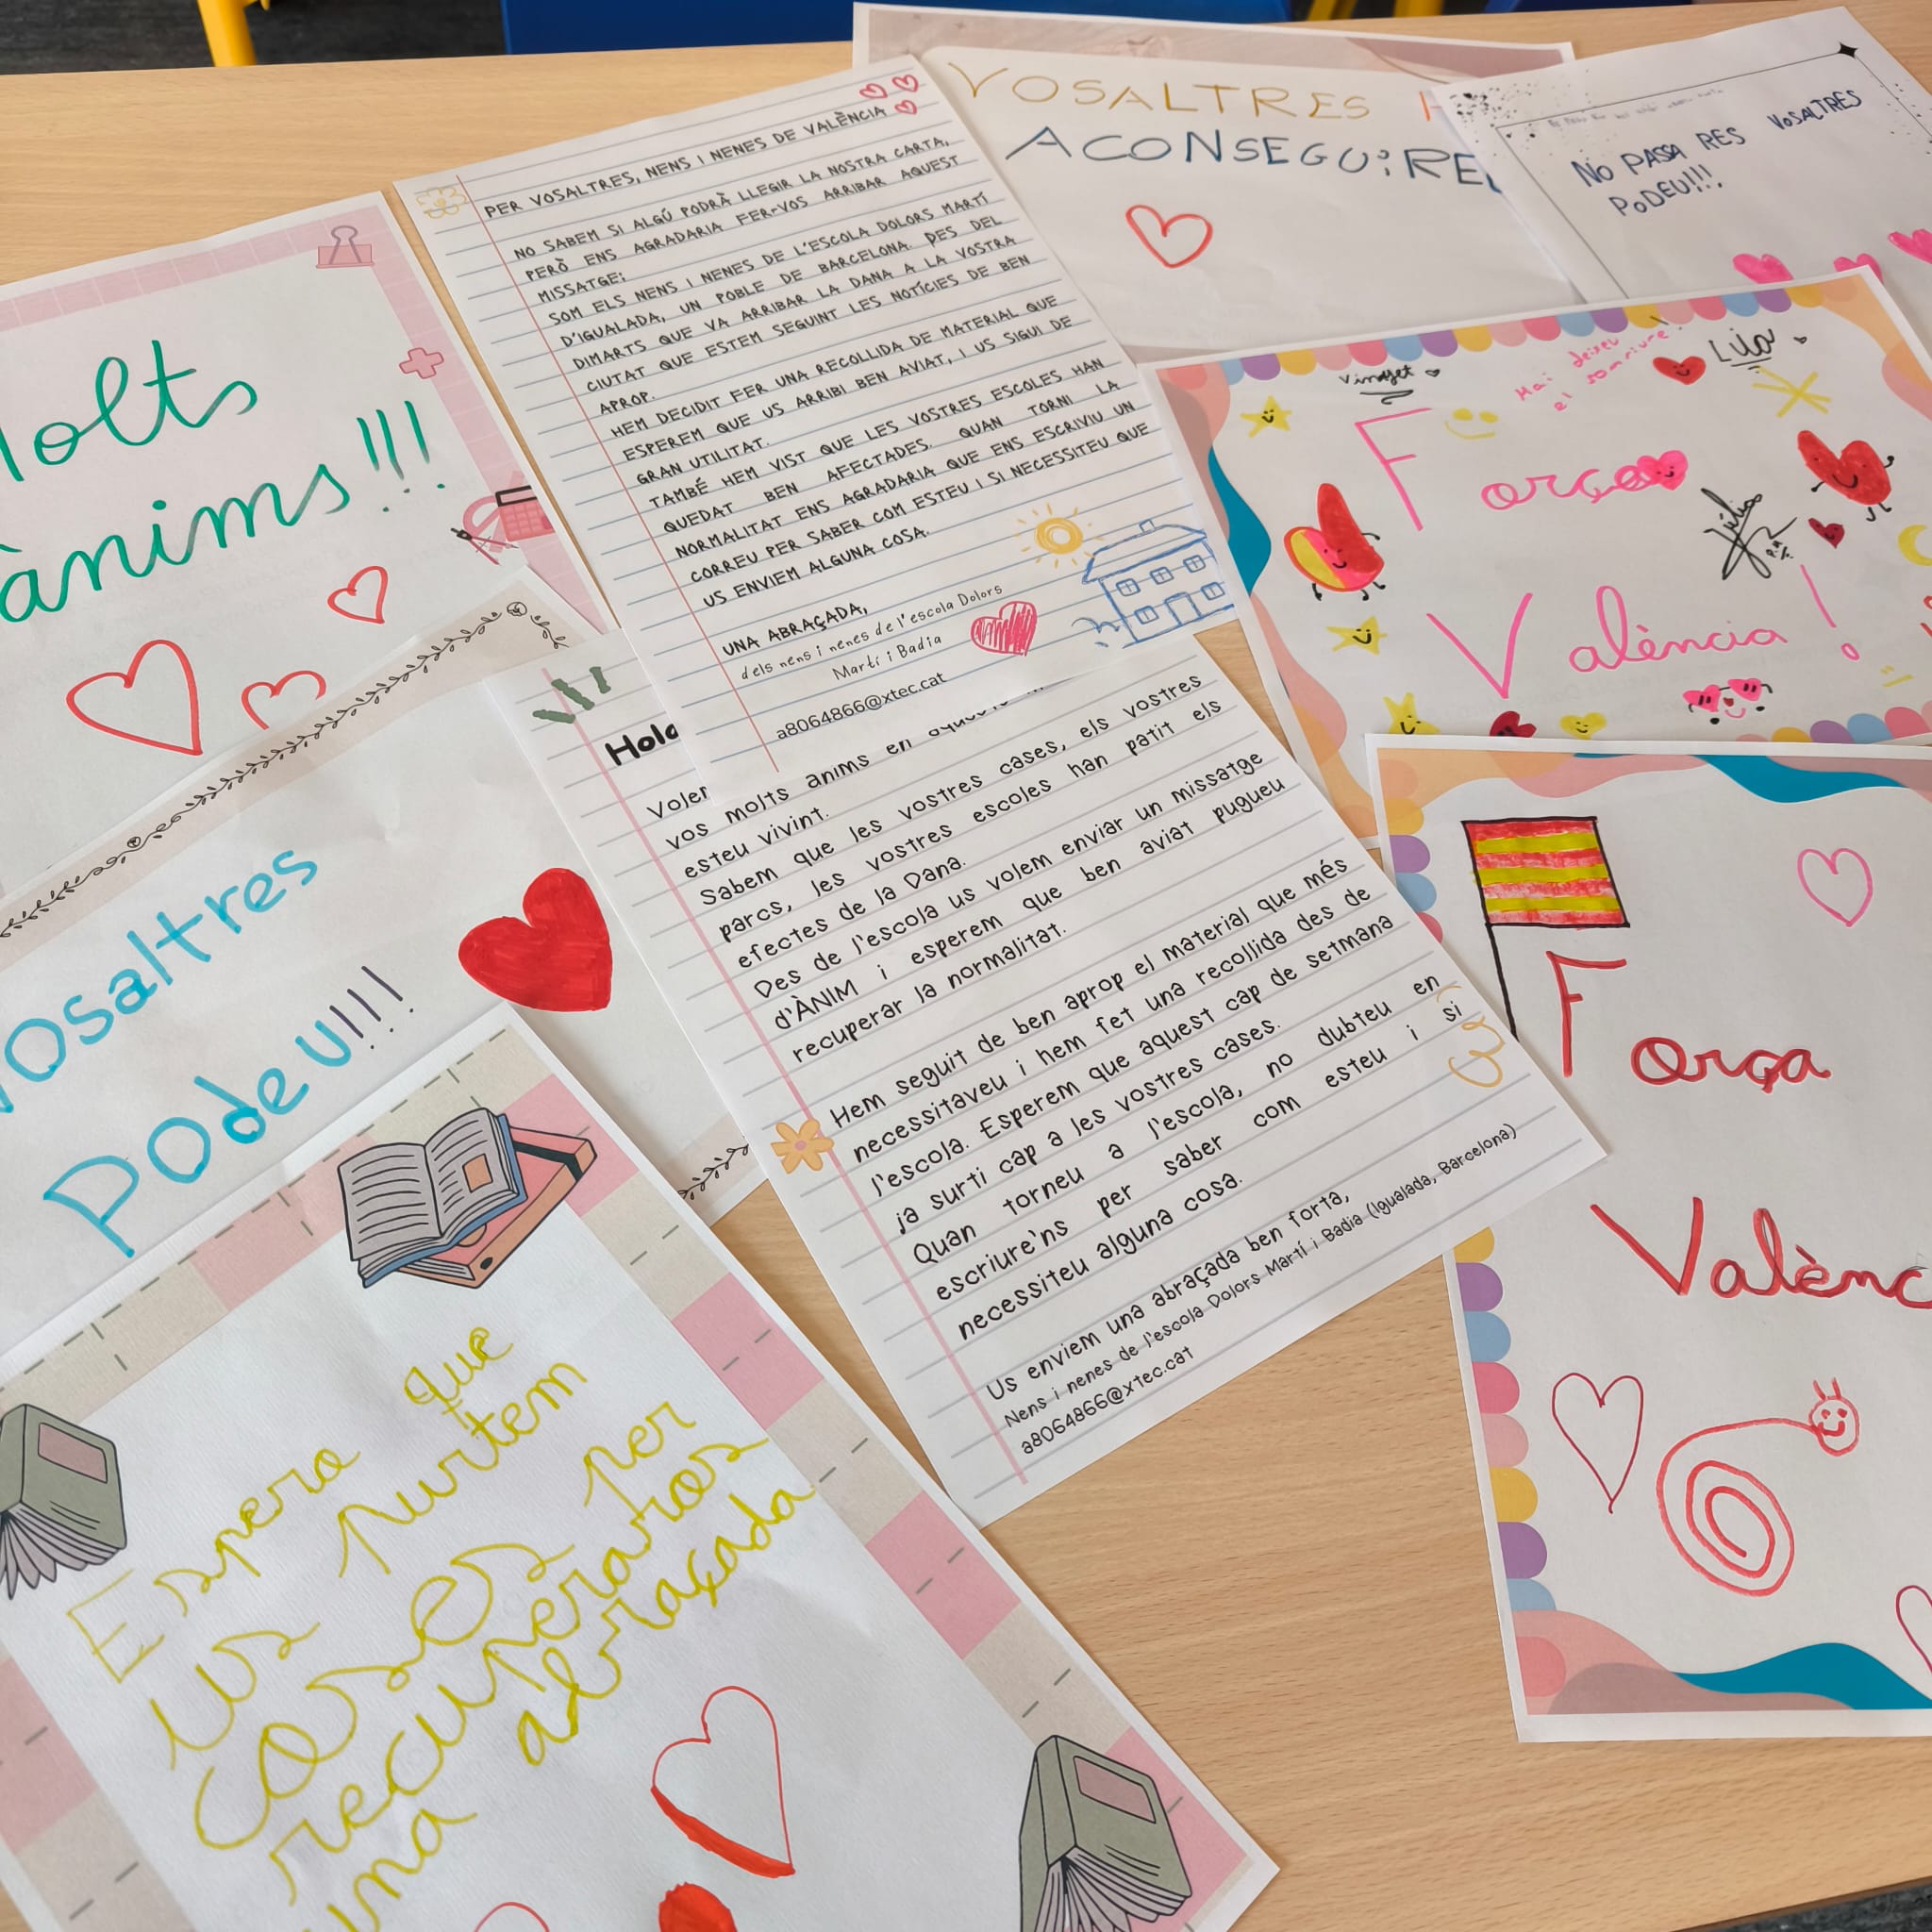 VOSALTRES
ACONSEGUIRE
NO PASSA RES VOSALTRES
PODEU!!!
PER VOSALTRES, NENS I NENES DE VALÈNCIA
NO SABEM SI ALGÚ PODRÀ LLEGIR LA NOSTRA CARTA,
PERÒ ENS AGRADARIA FER-VOS ARRIBAR AQUEST
MISSATGE:
SOM ELS NENS I NENES DE L'ESCOLA DOLORS MARTÍ
D'IGUALADA, UN POBLE DE BARCELONA. DES DEL
DIMARTS QUE VA ARRIBAR LA DANA A LA VOSTRA
CIUTAT QUE ESTEM SEGUINT LES NOTÍCIES DE BEN
APROP.
HEM DECIDIT FER UNA RECOLLIDA DE MATERIAL QUE
ESPEREM QUE US ARRIBI BEN AVIAT, I US SIGUI DE
GRAN UTILITAT.
TAMBÉ HEM VIST QUE LES VOSTRES ESCOLES HAN
QUEDAT BEN AFECTADES. QUAN TORNI LA
NORMALITAT ENS AGRADARIA QUE ENS ESCRIVIU UN
CORREU PER SABER COM ESTEU I SI NECESSITEU QUE
US ENVIEM ALGUNA COSA.
UNA ABRAÇADA,
dels nens i nenes de l'escola Dolors
Martí i Badia
a8064866@xtec.cat
Molts
ànims!!!
Mai deixeu
el somriure!
Lila
Força
Júlia
València!
Hola
Voler
vos molts ànims en aquests
esteu vivint.
Sabem que les vostres cases, els vostres
parcs, les vostres escoles han patit els
efectes de la Dana.
Des de l'escola us volem enviar un missatge
d'ÀNIM i esperem que ben aviat pugueu
recuperar la normalitat.
Hem seguit de ben aprop el material que més
necessitaveu i hem fet una recollida des de
l'escola. Esperem que aquest cap de setmana
ja surti cap a les vostres cases.
Quan torneu a l'escola, no dubteu en
escriure'ns per saber com esteu i si
necessiteu alguna cosa.
Us enviem una abraçada ben forta,
Nens i nenes de l'escola Dolors Martí i Badia (Igualada, Barcelona)
a8064866@xtec.cat
Vosaltres
Podeu!!!!
Força
Valènc
Espero que
us purtem
coses per
recuperatros
una abraçada